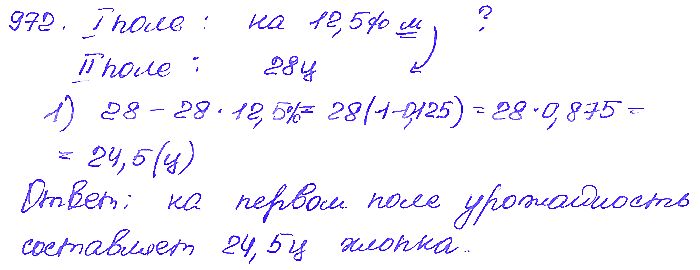 972. I поле : на 12,5% м ?
II поле : 28ц
1) 28 - 28 · 12,5% = 28(1-0,125) = 28 · 0,875 =
= 24,5(ц)
Ответ: на первом поле урожайность
составляет 24,5ц хлопка.